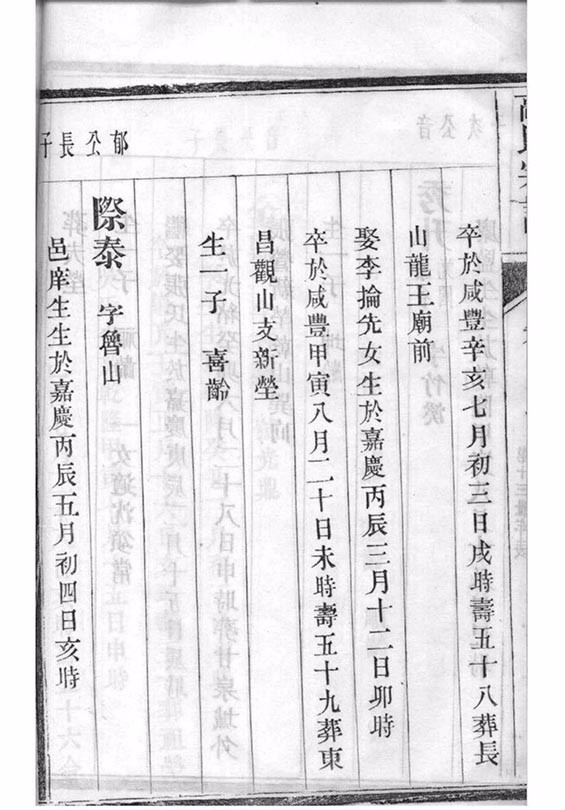 卒於咸豐辛亥七月初三日戌時壽五十八葬長
山龍王廟前
娶李掄先女生於嘉慶丙辰三月十二日卯時
卒於咸豐甲寅八月二十日未時壽五十九葬東
昌觀山支新塋
生一子 喜齡
郁公長子
際泰 字魯山
邑庠生生於嘉慶丙辰五月初四日亥時